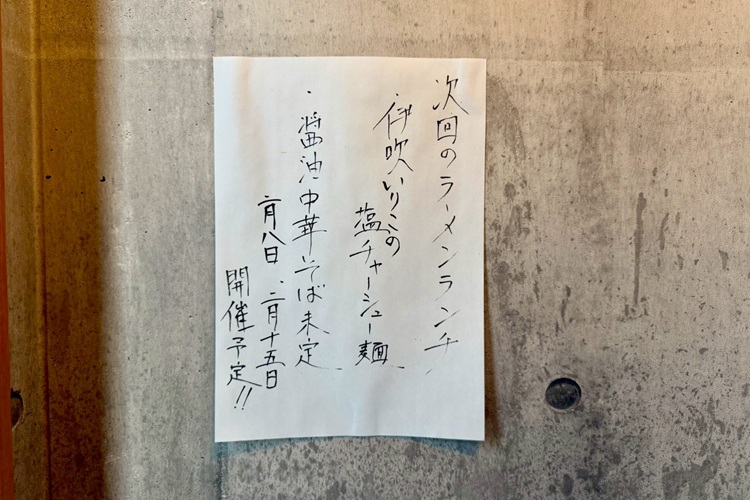 次回のラーメンランチ
・伊吹いりこの
塩チャーシュー麺
・醤油中華そば未定
二月八日、二月十五日
開催予定!!